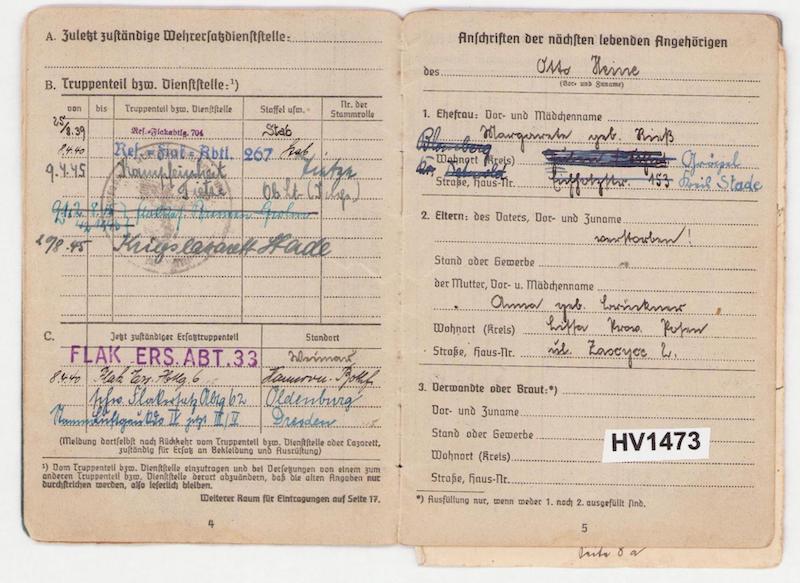 A. Zuletzt zuständige Wehrersatzdienststelle:
B. Truppenteil bzw. Dienststelle:¹)
von bis Truppenteil bzw. Dienststelle Staffel usw. Nr. der Stammrolle
25/8.39 Res.-Flakabtlg. 704 Stab
8.4.40 Res.-Flak-Abtl. 267 Stab
9.4.45
Ob.Lt.
Bremen
29/8.45 Kriegslazarett Stade
C. Jetzt zuständiger Ersatztruppenteil Standort
FLAK ERS. ABT. 33 Weimar
8.4.40 Flak Ers. Abtlg. 6 Hannover-Bothf.
schw. Flakersatz Abtg 62 Oldenburg
IV III/IV Dresden
(Meldung dortselbst nach Rückkehr vom Truppenteil bzw. Dienststelle oder Lazarett,
zuständig für Ersatz an Bekleidung und Ausrüstung)
¹) Vom Truppenteil bzw. Dienststelle einzutragen und bei Versetzungen von einem zum
anderen Truppenteil bzw. Dienststelle derart abzuändern, daß die alten Angaben nur
durchstrichen werden, also leserlich bleiben.
Weiterer Raum für Eintragungen auf Seite 17.
4
Anschriften der nächsten lebenden Angehörigen
des Otto Heine
(Vor- und Zuname)
1. Ehefrau: Vor- und Mädchenname
Margarete geb.
Blomberg
Wohnort (Kreis)
Kr. Detmold
Straße, Haus-Nr. 153 Kreis Stade
2. Eltern: des Vaters, Vor- und Zuname
verstorben!
Stand oder Gewerbe
der Mutter, Vor- u. Mädchenname
Anna geb. Brückner
Wohnort (Kreis) Lissa Prov. Posen
Straße, Haus-Nr. ul. 2.
3. Verwandte oder Braut:*)
Vor- und Zuname
Stand oder Gewerbe
HV1473
Wohnort (Kreis)
Straße, Haus-Nr.
*) Ausfüllung nur, wenn weder 1. noch 2. ausgefüllt sind.
5
Seite 8a